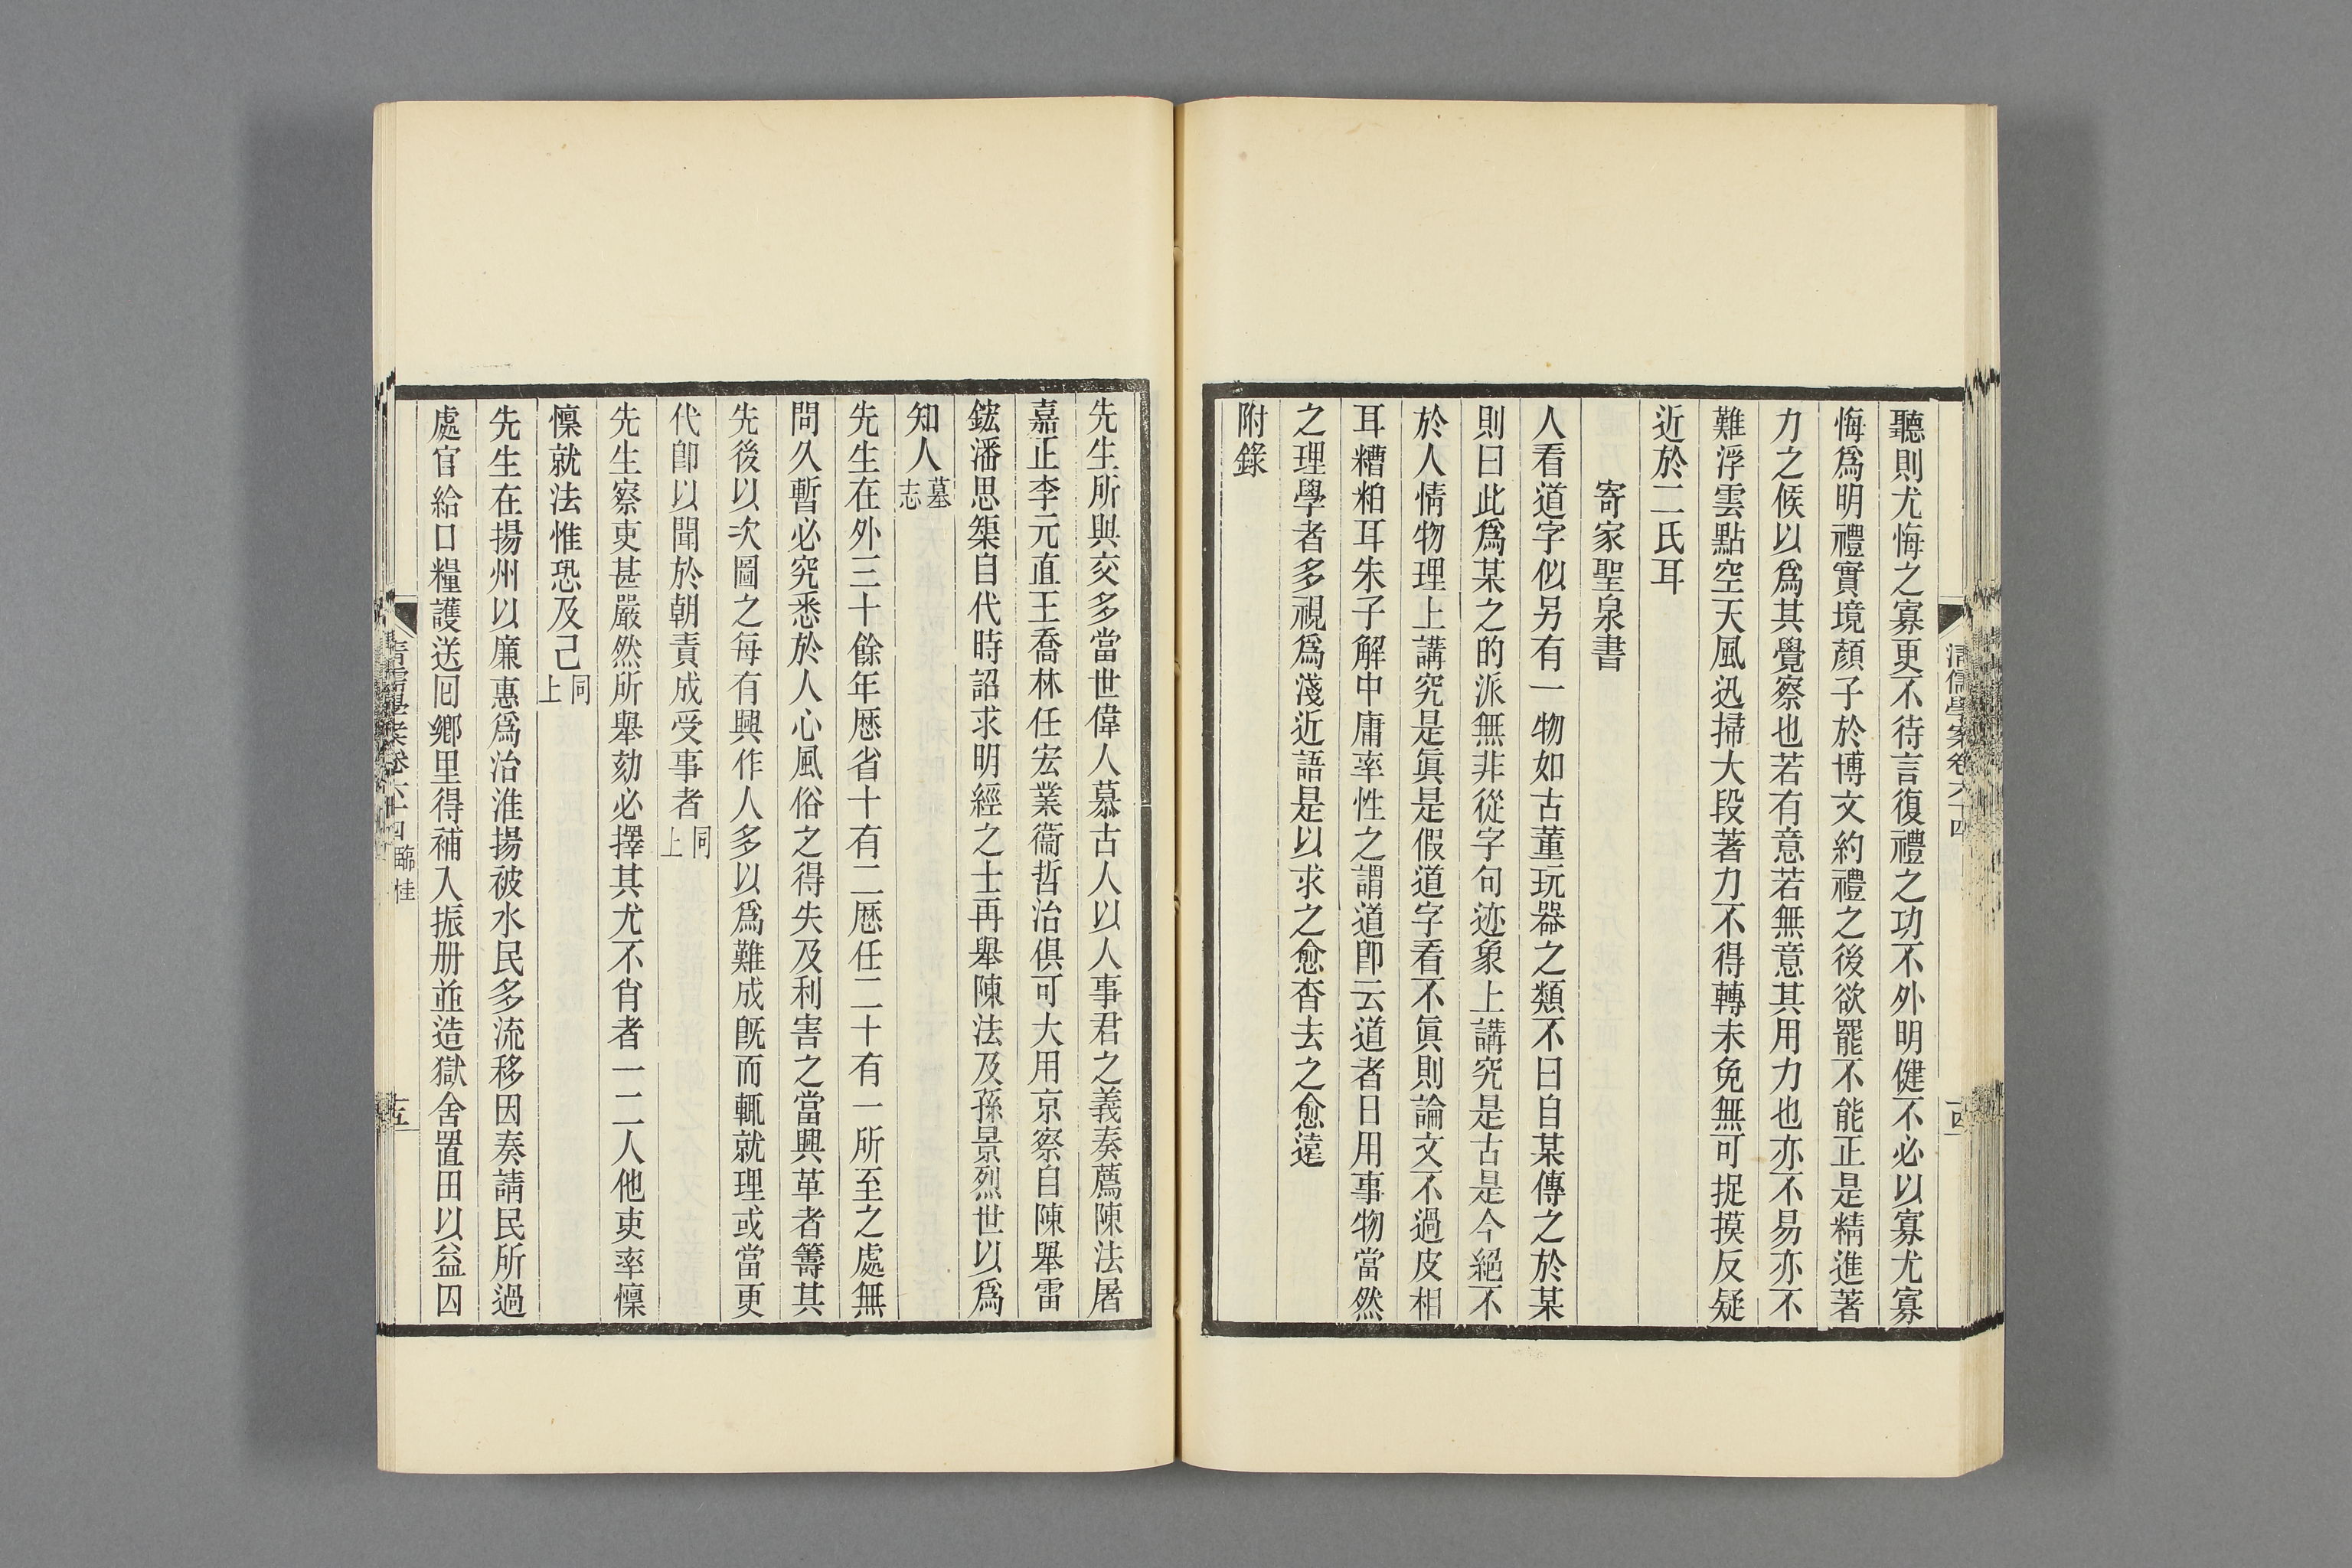 清儒學案卷六十四
十四
聽則尤悔之寡更不待言復禮之功不外明健不必以寡尤寡
悔爲明禮實境顏子於博文約禮之後欲罷不能正是精進著
力之候以爲其覺察也若有意若無意其用力也亦不易亦不
難浮雲點空天風迅掃大段著力不得轉未免無可捉摸反疑
近於二氏耳
寄家聖泉書
人看道字似另有一物如古董玩器之類不曰自某傳之於某
則曰此爲某之的派無非從字句迹象上講究是古是今絕不
於人情物理上講究是眞是假道字看不眞則論文不過皮相
耳糟粕耳朱子解中庸率性之謂道卽云道者日用事物當然
之理學者多視爲淺近語是以求之愈杳去之愈遠
附錄
先生所與交多當世偉人慕古人以人事君之義奏薦陳法屠
嘉正李元直王喬林任宏業衞哲治俱可大用京察自陳舉雷
鋐潘思榘自代時詔求明經之士再舉陳法及孫景烈世以爲
知人墓志
先生在外三十餘年歷省十有二歷任二十有一所至之處無
問久暫必究悉於人心風俗之得失及利害之當興革者籌其
先後以次圖之每有興作人多以爲難成旣而輒就理或當更
代卽以聞於朝責成受事者同上
先生察吏甚嚴然所舉劾必擇其尤不肖者一二人他吏率懍
懍就法惟恐及己同上
先生在揚州以廉惠爲治淮揚被水民多流移因奏請民所過
處官給口糧護送回鄉里得補入振册並造獄舍置田以益囚
清儒學案卷六十四 臨桂
十五